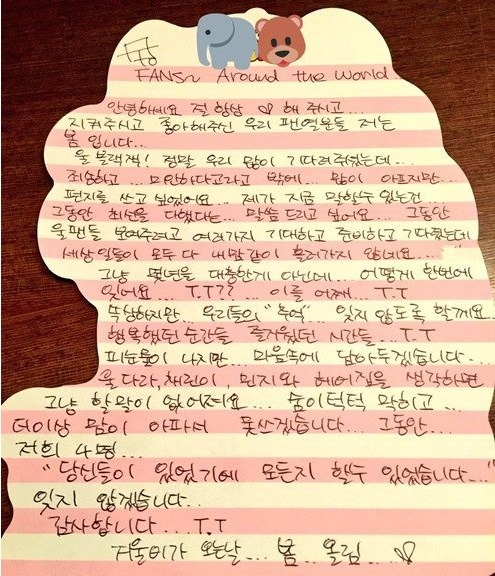 FANS~ Around the world
안녕하세요 절 항상 ♡ 해 주시고...
지켜주시고 좋아해주신 우리 팬 여러분들 저는
봄 입니다...
울 블랙잭! 정말 우리 많이 기다려주셨는데...
죄송하고... 미안하다고라고 밖에... 많이 아프지만...
편지를 쓰고 싶었어요... 제가 지금 말할수 있는건
그동안 최선을 다했다는... 말씀 드리고 싶어요... 그동안
울팬들 보여주려고 여러가지 기대하고 준비하고 기다렸는데
세상일들이 모두 다 내맘같이 흘러가지 않네요...
그냥 몇년을 대충한게 아닌데... 어떻게 한번에
잊어요... T.T?? ... 이를 어째... T.T
속상하지만... 우리들의 "추억" 잊지 않도록 할께요
행복했던 순간들 즐거웠던 시간들... T.T
피눈물이 나지만... 마음속에 담아두겠습니다...
욱 다라, 채린이, 민지와 헤어짐을 생각하면
그냥 할말이 없어져요... 숨이턱턱 막히고...
더이상 맘이 아파서 못쓰겠습니다... 그동안...
저희 4명...
"당신들이 있었기에 모든지 할수 있었습니다..."
잊지 않겠습니다..
감사합니다... T.T
겨울비가 오는날... 봄.. 올림... ♡